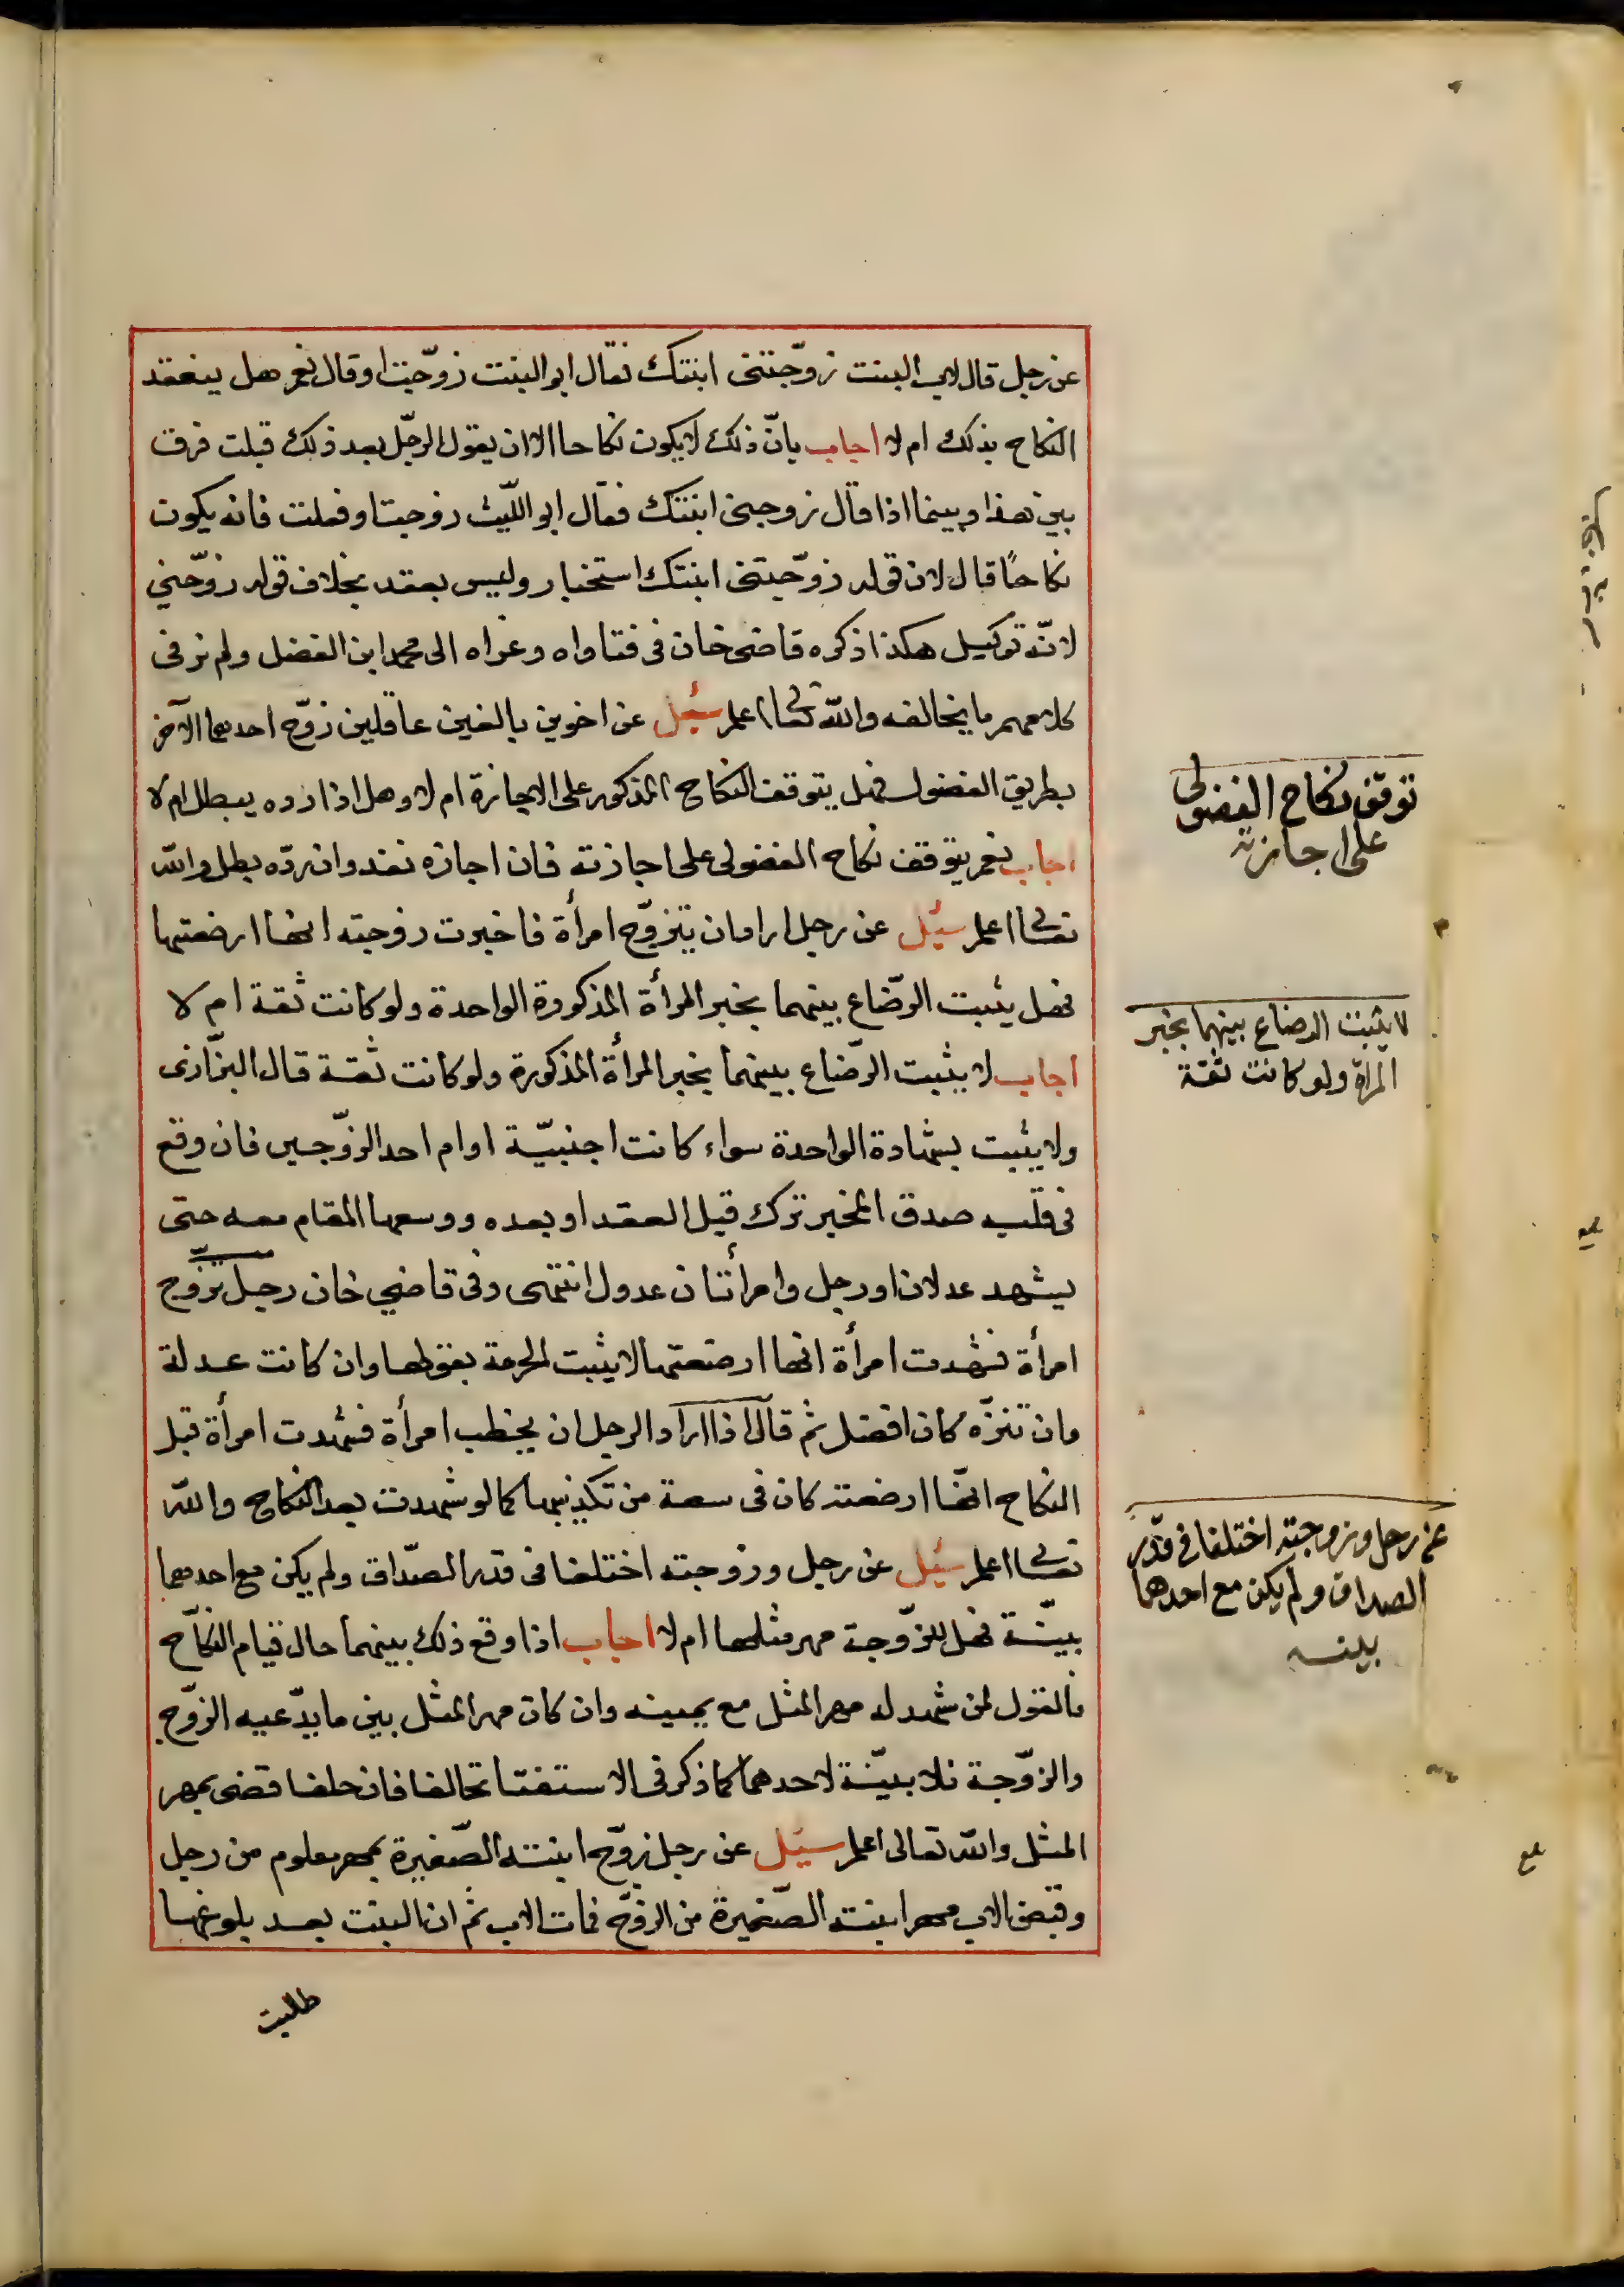 عن رجل قال لابي البنت زوّجتنى ابنتك فقال ابو البنت زوّجت او قال نعم هل ينعقد
النكاح بذلك ام لا اجاب بانّ ذلك لا يكون نكاحا الا ان يقول الرجّل بعد ذلك قبلت فرق
بين هذا وبينما اذا قال زوجنى ابنتك فقال ابو اللّيث زوجت او فعلت فانه يكون
نكاحًا قال لان قوله زوّجتنى ابنتك استخبار وليس بعقد بخلاف قوله زوّجني
لانّه توكيل هكذا ذكره قاضى خان فى فتاواه وعزاه الى محمد ابن الفضل ولم نر فى
كلامهم ما يخالفه والله تعالى اعلم سئل عن اخوين بالغين عاقلين زوّج احدهما الآخر
بطريق الفضول فهل يتوقف النكاح المذكور على الاجازة ام لا وهل اذا رده يبطل ام لا
اجاب نعم يتوقف نكاح الفضولى على اجازته فان اجازه نفد وان ردّه بطل والله
تعالى اعلم سئل عن رجل اراد ان يتزوّج امرأة فاخبرت زوجته انها ارضعتها
فهل يثبت الرضّاع بينهما بخبر المرأة المذكورة الواحدة ولو كانت ثقة ام لا
اجاب لا يثبت الرضّاع بينهما بخبر المرأة المذكورة ولو كانت ثقة قال البزّازى
ولا يثبت بشهادة الواحدة سواء كانت اجنبيّة او ام احد الزوّجين فان وقع
فى قلبه صدق المخبر ترك قبل العقد او بعده ووسعها المقام معه حتى
يشهد عدلان او رجل وامرأتان عدول انتهى وفى قاضي خان رجل تزوّج
امرأة فشهدت امرأة انها ارضعتهما لا يثبت الحرمة بقولها وان كانت عدلة
وان تنزّه كان افضل ثم قال اذا اراد الرجل ان يخطب امرأة فشهدت امرأة قبل
النكاح انهّا ارضعته كان فى سعة من تكذيبها كما لو شهدت بعد النكاح والله
تعالى اعلم سئل عن رجل وزوجته اختلفا فى قدر الصّداق ولم يكن مع احدهما
بينّة فهل للزوّجة مهر مثلها ام لا اجاب اذا وقع ذلك بينهما حال قيام النكاّح
فالقول لمن شهد له مهر المثل مع يمينه وان كان مهر المثل بين ما يدّعيه الزوّج
والزوّجة فلا بينّة لاحدهما كما ذكر فى الاستفتا تحالفا فان حلفا قضى بمهر
المثل والله تعالى اعلم سئل عن رجل زوّج ابنته الصّغيرة بمهر معلوم من رجل
وقبض الاب مهر ابنته الصّغيرة من الزوّج فمات الاب ثم ان البنت بعد بلوغها
طلبت
توقف نكاح الفضولى
على اجازته
لا يثبت الرضاع بينهما بخبر
المرأة ولو كانت ثقة
عن رجل وزوجته اختلفا فى قدر
الصداق ولم يكن مع احدهما
بينه